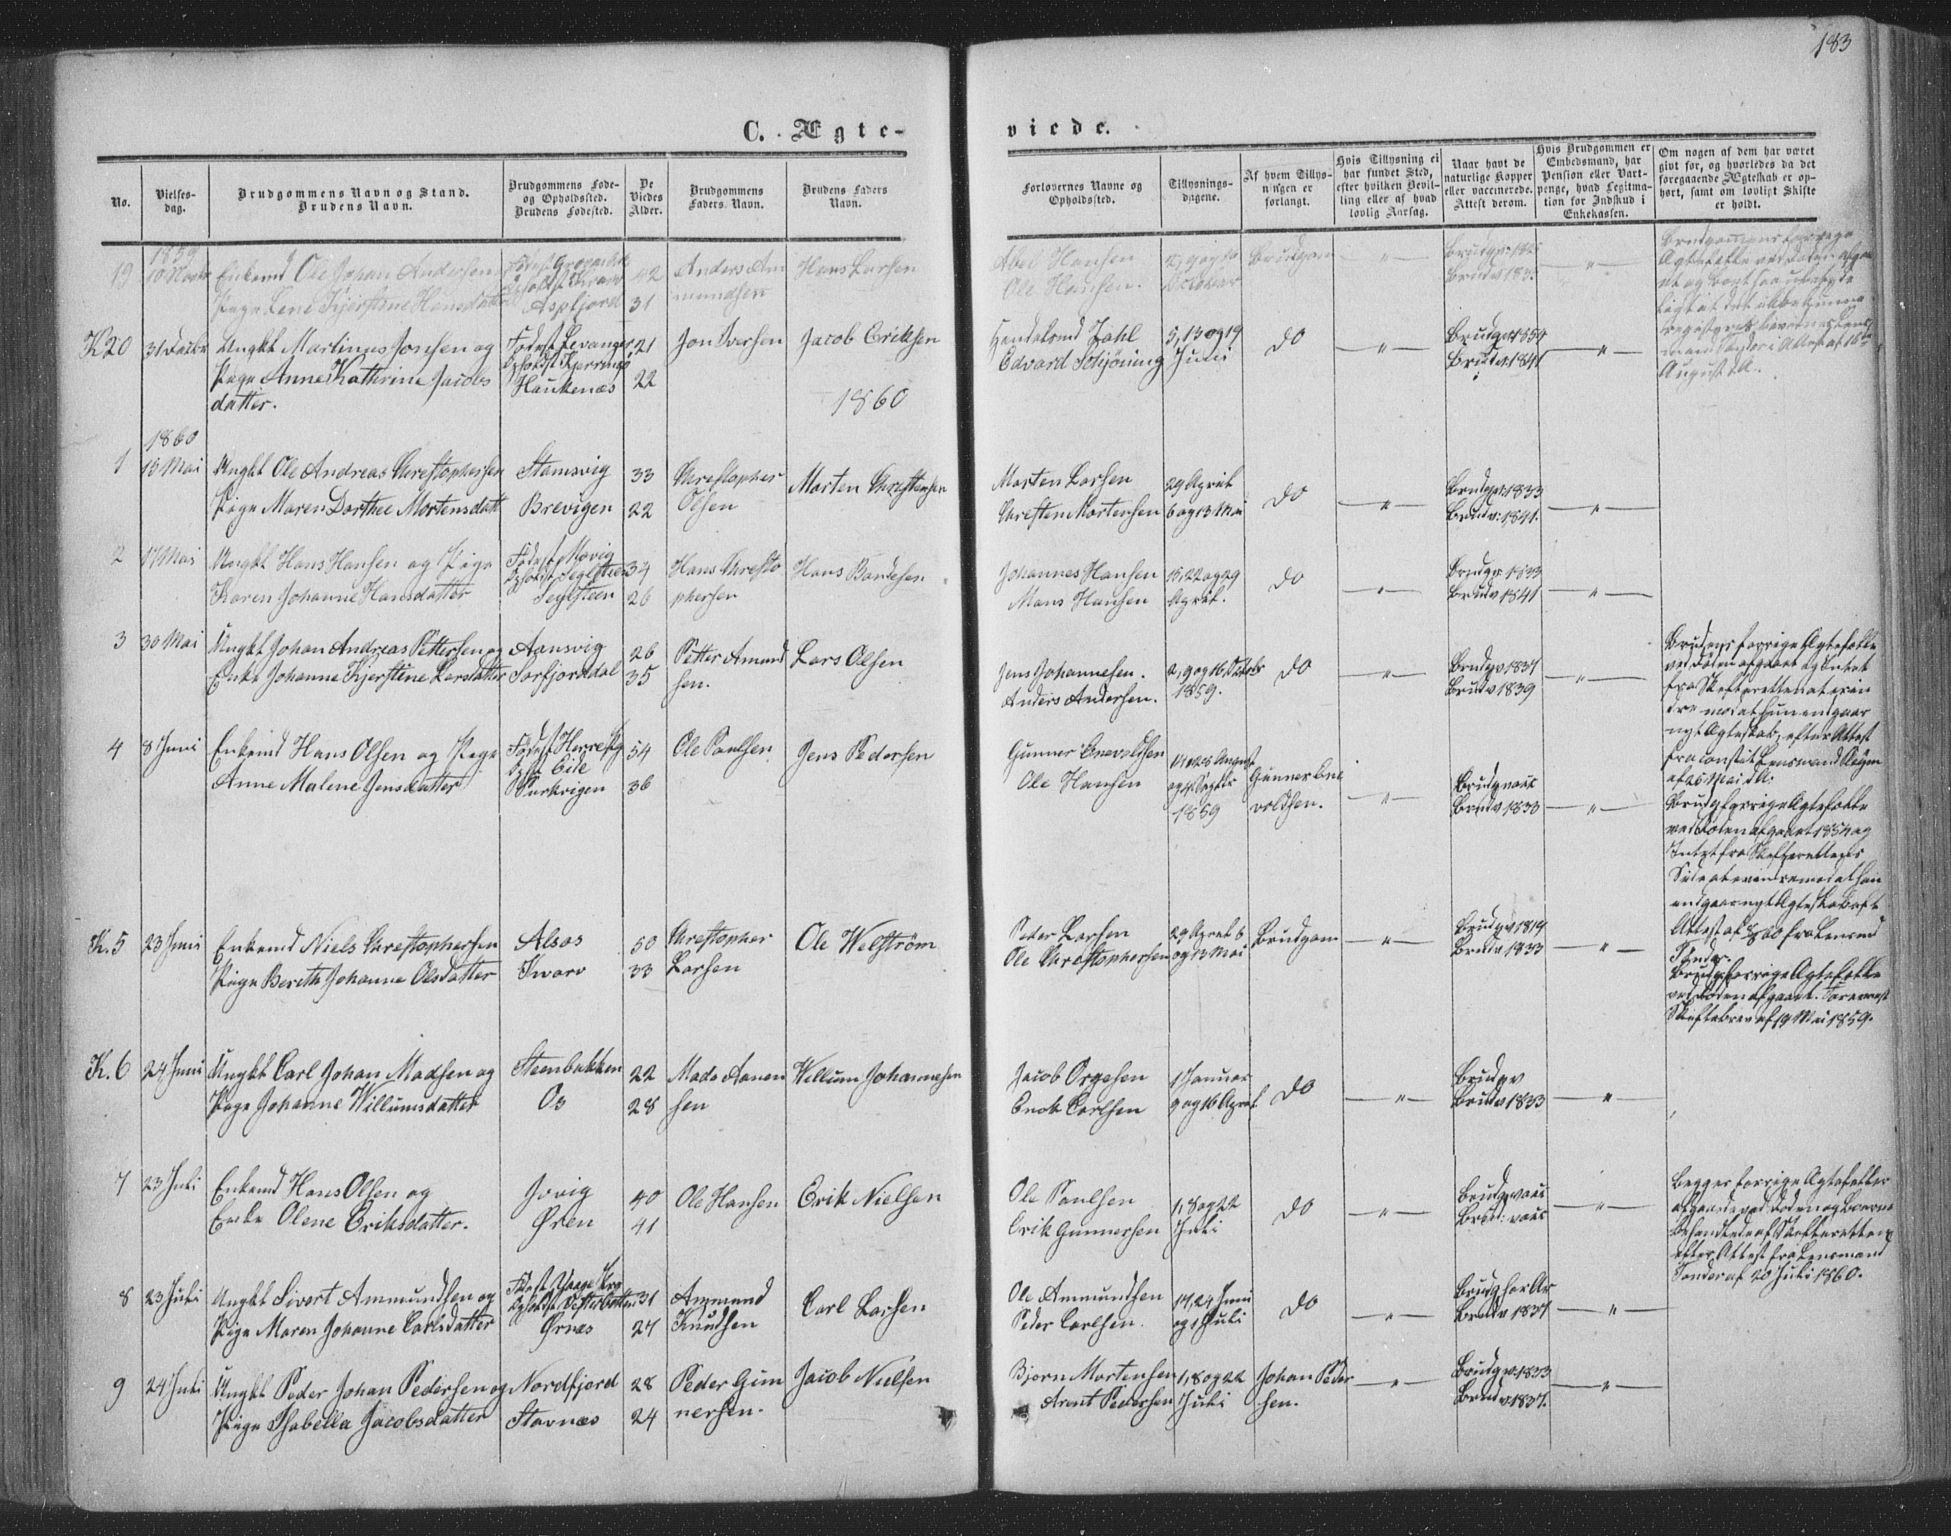 183
C. Ægte-
viede.
No.
Vielses-
dag.
Brudgommens Navn og Stand.
Brudens Navn.
Brudgommens Føde-
og Opholdssted.
Brudens Fødested.
De
Viedes
Alder.
Brudgommens
Faders Navn.
Brudens Faders
Navn.
Forlovernes Navne og
Opholdssted.
Tillysnings-
dagene.
Af hvem Tillys-
ningen er
forlangt.
Hvis Tillysning ei
har fundet Sted,
efter hvilken Bevil-
ling eller af hvad
lovlig Aarsag.
Naar havt de
naturlige Kopper
eller vaccinerede.
Attest derom.
Hvis Brudgommen er
Embedsmand, har
Pension eller Vart-
penge, hvad Legitima-
tion for Indskud i
Enkekassen.
Om nogen af dem har været
givt før, og hvorledes da det
foregaaende Ægteskab er op-
hørt, samt om lovligt Skifte
er holdt.
1859
19 10 Novbr Enkemd Ole Johan Andersen
Pige Lene Kjerstine Hansdatter
Aspfjord
42
31
Anders Am
mundsen
Hans Larsen
Abel Hansen
Ole Hansen.
2, 9 og 16
October
Brudgom
— " —
Brudgv: 182
Brudv 183
— " —
K 20 31 Decbr Ungkt Martinus Jonsen og
Pige Anne Kathrine Jacobs
datter.
Fødest Levanger
Opholdst Kjerringø
Haukenæs
21
22
Jon Iversen
Jacob Eriksen
Hendekend Zahl
Edvard Schjöning
5, 13 og 19
Juni
do
— " —
Brudgv 1859
Brudv 1841
— " —
August d.A.
1860
1860
1 15 Mai Ungkt Ole Andreas Chrestophersen
Pige Maren Dorthee Mortensdatt
Stamsvig
Brevigen
33
22
Chrestopher
Olsen
Morten Chrestensen
Morten Larsen
Chresten Mortensen
29 April
6 og 13 Mai
do
— " —
Brudgv: 1833
Brudv: 1841.
— " —
2 17 Mai Ungkt Hans Hansen og Pige
Karen Johanne Hansdatter
Fødest Movig
Opholdst Seglsteen
Seglsteen
34
26
Hans Chresto
phersen
Hans Bandesen
Johannes Hansen
Mons Hansen
15, 22 og 29
April.
do
— " —
Brudgv 1833
Brudv 1841
— " —
3 30 Mai Ungkt Johan Andreas Pettersen og
Enke Johanne Kjerstine Larsdatter
Aansvig
Sørfjorddal
26
35
Petter Amund
sen.
Lars Olsen
Jens Johannesen.
Anders Andersen.
2, 9 og 16 Octobr
1859.
do
— " —
Brudgv 1837
Brudv 1839
— " —
Brudens forrige Ægtefælle
ved Døden afgaaet og Intet
fra Skifteretten at erin
dre mod at hun indgaar
nyt Ægteskab, efter Attest
fra const: Lensmand
af 26 Mai d.A.
4 8 Juni Enkemd Hans Olsen og Pige
Anne Malene Jensdatter
Eide
54
36
Ole Paulsen
Jens Pedersen
Gunner Enevoldsen
Ole Hansen
14 og 28 August
og 4 Septbr
1859
Gunner Ene
voldsen.
— " —
Brudg vacc
Brudv 1833
— " —
Brudg forrige Ægtefælle
ved Døden afgaaet 1854 og
Intet fra Skifterettens
Side at erindre mod at han
indgaar nyt Ægteskab eft
Attest af fra Lensmd
K. 5 23 Juni Enkemd Niels Chrestophersen
Pige Bereth Johanne Olsdatter
Alsos
Kvarv
50
33
Chrestopher
Larsen
Ole Welström
Peder Larsen
Ole Chrestophersen
29 April 6
og 13 Mai
Brudgom
— " —
Brudgv 1819
Brudv 1833
— " —
Brudg forrige Ægtefælle
ved Døden afgaaet. Forevist
Skiftebrev af 19 Mai 1859.
K. 6 24 Juni Ungkt Carl Johan Madsen og
Pige Johanne Willumsdatter
Steenbakken
Os
22
28
Mads Aanen
sen
Willum Johannesen
Jacob Orgesen
Enok Carlsen
1 Januar
9 og 16 April
do
— " —
Brudgv
Brudv 1833
— " —
7 23 Juli Enkemd Hans Olsen og
Enke Olene Eriksdatter.
Jovig
Øren
40
41
Ole Hansen
Erik Nielsen
Ole Paulsen
Erik Gunnersen
1, 8 og 22
Juli
do
— " —
Brudg vacc
Brud: vacc
— " —
Begges forrige Ægtefæller
afgaaede ved Døden og Boerne
behandlede af Skifteretten
efter Attest fra Lensmand
Tønder af 20 Juli 1860.
8 23 Juli Ungkt Sivert Ammundsen og
Pige Maren Johanne Carlsdatter
Ørnæs
31
24
Ammund
Knudsen
Carl Larsen
Ole Ammundsen
Peder Carlsen.
17, 24 Juni
og 1 Juli
do
— " —
Brudg har Ar
Brudv 1837
— " —
9 24 Juli Ungkt Peder Johan Pedersen og
Pige Isabella Jacobsdatter
Nordfjord
Stavnæs
28
24
Peder Gun
nersen.
Jacob Nielsen
Bjørn Mortensen
Arent Pedersen
1, 8 og 22
Juli
Johan Peder
sen.
— " —
Brudgv 1833
Brudv 1837.
— " —